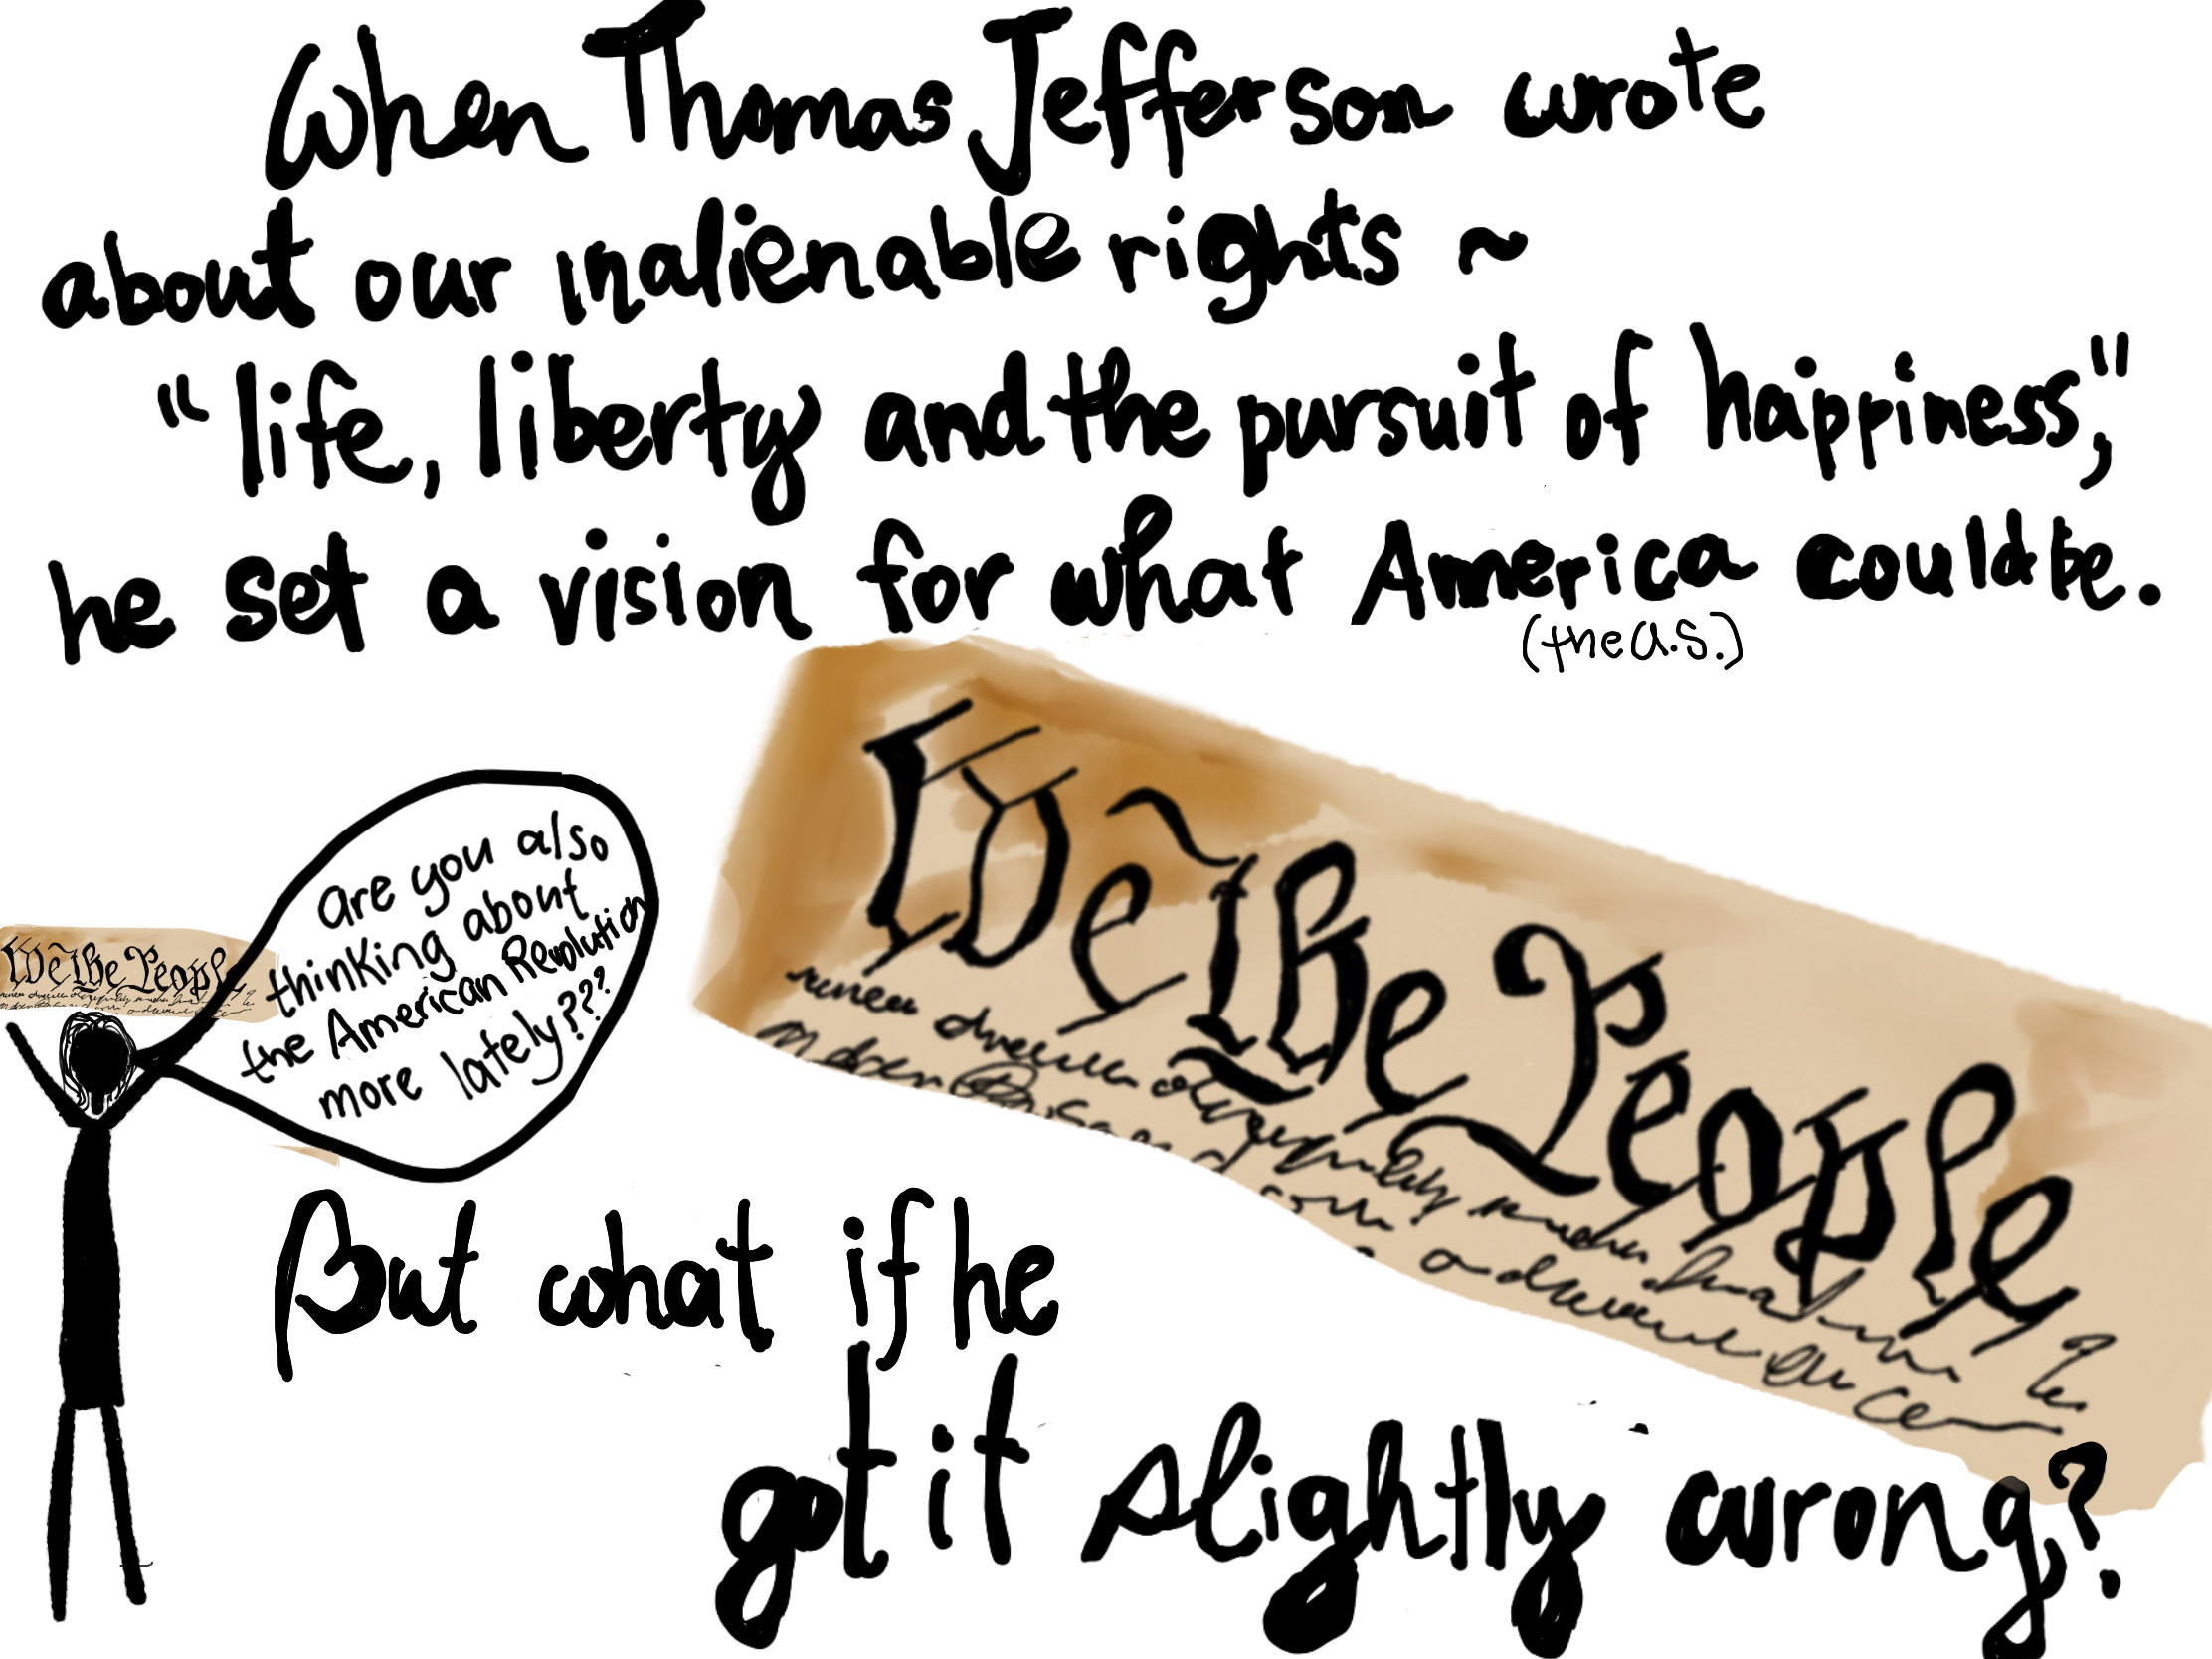 When Thomas Jefferson wrote
about our inalienable rights ~
"life, liberty and the pursuit of happiness,"
he set a vision for what America could be.
(the U.S.)
We the People
We the People
are you also
thinking about
the American Revolution
more lately???
But what if he
got it slightly wrong?